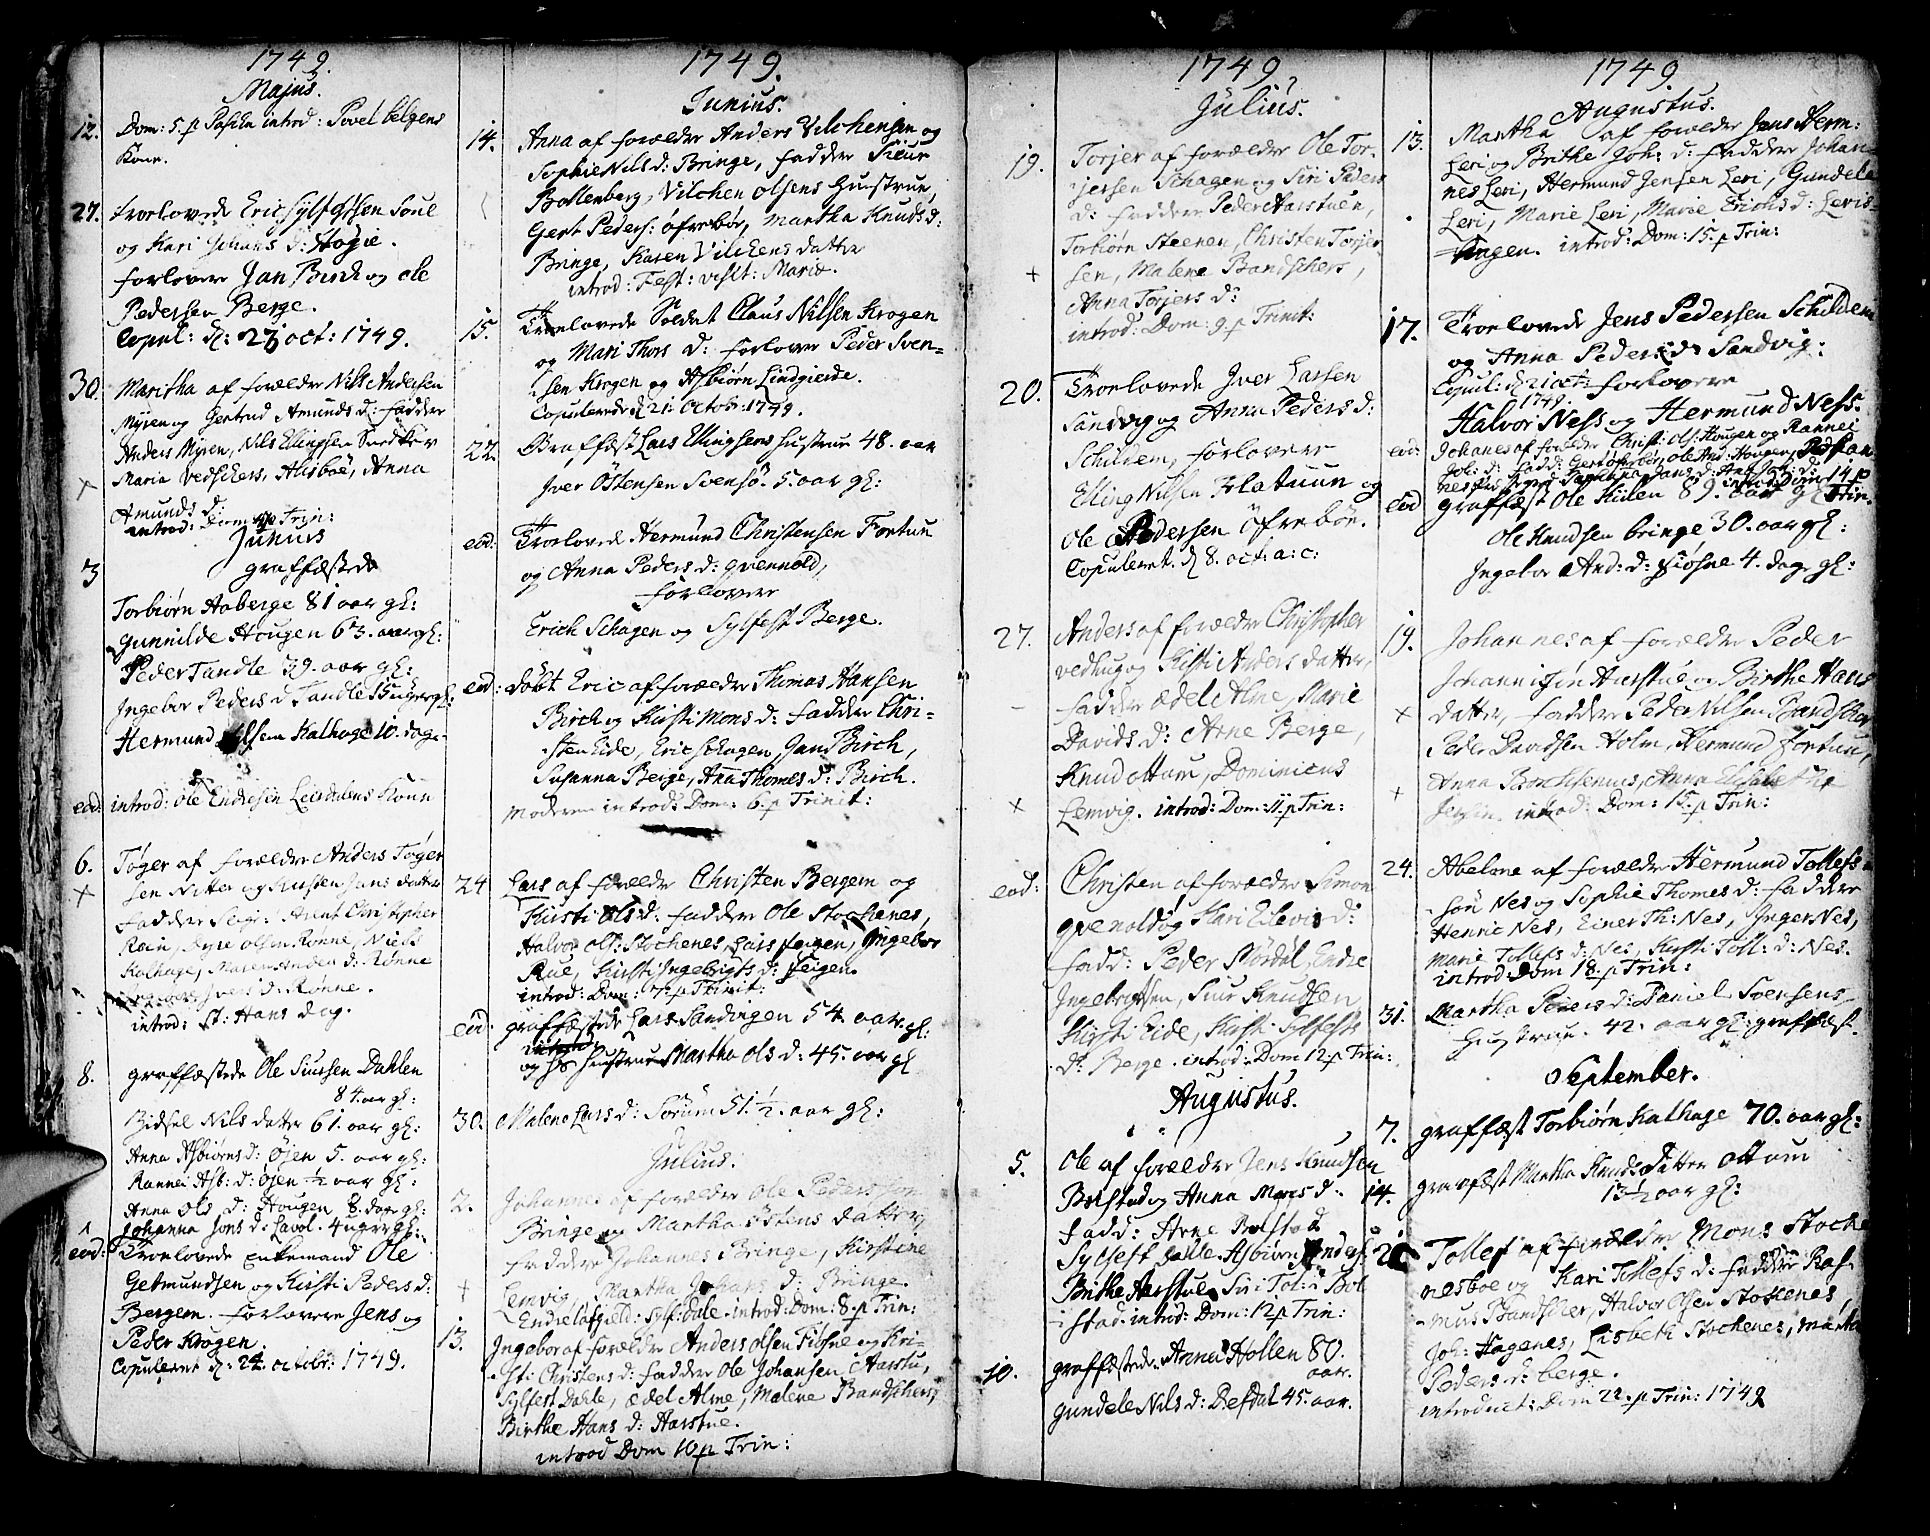 1749.
Majus.
12. Dom: 5. p Pascha introd: Povel belgens
Kone.
27. Troelovede Eric Sylfestsen Soue
og Kari Johans d: Høgie.
forlovere Jan Birch og Ole
Pedersen Berge.
Copul: d: 27 oct: 1749.
30. Maritha af forældre Nils Andersen
Myren og Gertrud Amunds d: faddere
Anders Myren, Nils Ellingsen
Maria Vedschers, Anna
Amunds d:
introd: Dom: p Trin:
Junius
3 graffæstede
Torbiørn Aaberge 81 aar gl:
Gunnilde Hougen 63. aar gl:
Peder Tandle 39. aar gl:
Ingebor Peders d Tandle 15 uger gl:
Hermund Kalhage 10. dage
eod: introd: Ole Endresen Leirdalens Kone
6. Tøger af forældre Anders Tøger
sen Nitter og Kirsten Jans datter
faddere Christopher
Olsen Rønne, Niels
Kalhage, Maren d: Rønne
Ivers d: Rønne.
introd: St: Hans dag.
8. graffæstede Ole Siursen Dahlen
84. aar gl:
Bidsel Nils datter 61. aar gl:
Anna Asbiørns d: Øjen 5. aar gl:
Rannei Asb: d: Øjen ½ aar gl:
Anna Ols d: Hougen 8. dage gl:
Johanna Jons d: Lavol. 4 uger gl:
eod: Troelovede Enkemand Ole
Getmundsen og Kirsti Peders d:
Bergem. forlovere Jens og
Peder Krogen.
Copuleret d: 22 octobr: 1749.
1749.
Junius.
14. Anna af forældre Anders Vilchensen og
Sophie Nils d: Bringe, faddere Siur
Bollenberg, Vilchen Olsens Hustrue,
Gert Peders: Øfrebør, Martha Knuds d:
Bringe, Karen Vilchens datter
introd: Fest: visit: Mariæ.
15. Troelovede Soldat Claus Nilsen Krogen
og Mari Thors d: forlover Peder Sven-
sen Krogen og Asbiørn Lindgierde.
Copulerede d 21 Octobr: 1749.
22. Graffæst Lars Ellingsens Hustrue 48. aar
Iver Østensen Svensø 5. aar gl:
eod: Troelovede Hermund Christensen Fortun
og Anna Peders d: qvennold,
forlovere
Erich Schagen og Sylfest Berge.
eod: døbt Eric af forældre Thomas Hansen
Birch og Kirsti Mons d: faddere Chri-
sten Eide, Eric Schagen, Jans Birch,
Susanna Berge, Anna Thomes d: Birch.
Moderen introd: Dom: 6. p Trinit:
24 Lars af forældre Christen Bergem og
Kirsti Ols d: faddere Ole Stochenes,
Halvor Ols: Stochenes, Lars feigen, Ingebor
Rue, Kirsti Ingebrigts d: feigen.
introd: Dom: 7. p Trinit:
eod. graffæstede Lars Sandingen 54. aar gl:
og hs Hustrue Martha Ols d: 45. aar gl
30. Malene Lars d: Sørum 51. ½. aar gl:
Julius.
2. Johannes af forældre Ole Pedersen
Bringe og Martha Østens datter
faddere Johannes Bringe, Kirstine
Lemvig, Martha d: Bringe.
Endre Løfgield: Sylf: Dale. introd: Dom: 8. p Trin:
13. Ingebor af forældre Anders Olsen Fiøsne og Kri-
st: Christens d: faddere Ole Johansen Aarstu,
Sylfest Dahle, Ædel Alme, Malene Bandschers,
Birthe Hans d: Aarstue.
introd Dom 10 p Trin:
1749.
Julius.
19. Torjer af forældre Ole Tor-
jersen Schagen og Siri Peders
d: faddere Peder Aarstuen,
Torbiørn Steenen, Christen Torjer-
sen, Malene Bandschers,
Anna Torjers d:
introd: Dom: 9. p Trinit:
20. Troelovede Iver Larsen
Sandvig og Anna Peders d:
Schildem, forlovere
Elling Nilsen Flatuun og
Ole Pedersen Øfrebøe.
Copuleret. d 8. oct: a: c:
27. Anders af forældre Christopher
Vedhug og Kisti Anders datter,
faddere Ædel Alme, Marie
Davids d: Arne Berge,
Knud Ottum, Dominicus
Lemvig. introd: Dom: 11 p Trin:
eod: Christen af forældre Simon
qvenold og Kari Eilevs d:
fadd: Peder Mørdal, Endre
Ingebrigtsen, Siur Knudsen
Kirsti Eide, Kirsti Sylfests
d: Berge. introd: Dom 12. p Trin:
Augustus.
5. Ole af forældre Jens Knudsen
Bolstad og Anna Mons d:
fadd: Arne Bolstad
Sylfest Dahle, Asbiørn Anders:
Brithe Aarstue, Siri Tol: d: Bol
stad. introd: Dom: 12 p Trin:
10. graffæstede Anna Hollen 80.
aar.
Gundele Nils d: Defdal 45. aar.
1749.
Augustus.
13. Martha af forældre Jens Herm:
Leri og Brithe Joh: d: faddere Johan
nes Leri, Hermund Jensen Leri, Gundela
Leri, Marie Leri, Marie Erichs d: Leris-
Engen. introd: Dom: 15. p Trin:
17. Troelovede Jens Pedersen Schildem
og Anna Peders d: Sandvig:
Copul: d 21 oct: forlovere
1749.
Halvor Ness og Hermund Ness.
eod: Johanes af forældre Christ: Ols: Hougen og Rannei
Joh: d: fadd: Gert Øfrebør, Ole And: Hougen,
introd: Dom 14 p
Trin.
eod graffæst Ole Kiilen 89. aar gl
Ole Knudsen bringe 30. aar gl:
Ingebor And: d: fiøsne 4. dage gl:
19. Johannes af forældre Peder
Johannissøn Aarstue og Birthe Hans
datter, faddere Peder Nilsen Bandscher
Peder Davidsen Holm, Hermund Fortun,
Anna Borchsenius, Anna Elisabet
Jensen. introd: Dom: 15. p Trin:
24. Abelone af forældre Hermund Tollefs-
søn Nes og Sophie Thomes d: faddere
Henric Nes, Einer Th: Nes, Inger Nes,
Marie Tollefs d: Nes, Kirsti Toll: d: Nes.
introd: Dom 18. p Trin:
31. Martha Peders d: Daniel Svensens
Hustrue. 42. aar gl: graffæst.
September.
7. graffæst Torbiørn Kalhage 70. aar gl:
14. gravfæst Martha Knuds Datter Ottum
13 ½ aar gl:
21 Tollef af forældre Mons Stoche
nesboe og Kari Tollefs d: faddere Ras-
mus Bandscher, Halvor Olsen Stochenes,
Joh: Hagenes, Lisbeth Stochenes, Marta
Peders d: berge.
introduct: Dom 22. p Trin: 1749